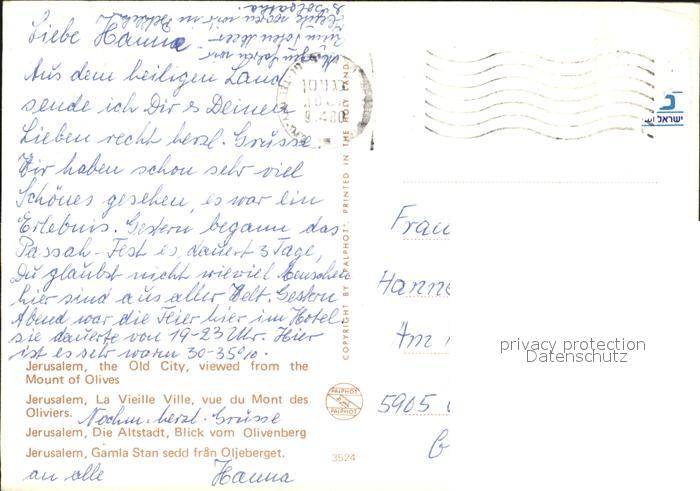 Liebe Hanna
Aus dem heiligen Land
sende ich Dir & Deinen
Lieben recht herzl. Grüsse.
Wir haben schon sehr viel
Schönes gesehen, es war ein
Erlebnis. Gestern begann das
Passah-Fest es dauert 3 Tage,
Du glaubst nicht wieviel Menschen
hier sind aus aller Welt. Gestern
Abend war die Feier hier im Hotel
sie dauerte von 19-23 Uhr. Hier
ist es sehr warm 30-35%.
Jerusalem, the Old City, viewed from the
Mount of Olives
Jerusalem, La Vieille Ville, vue du Mont des
Oliviers.
Nochm. herzl. Grüsse
Jerusalem, Die Altstadt, Blick vom Olivenberg
Jerusalem, Gamla Stan sedd från Oljeberget.
an alle Hanna
Morgen fahren wir
zum Toten Meer
Heute waren wir in
COPYRIGHT BY "PALPHOT". PRINTED IN THE HOLY LAND
PALPHOT
PALPHOT
3524
ישראל
Frau
Hanne
Am
5905
privacy protection
Datenschutz